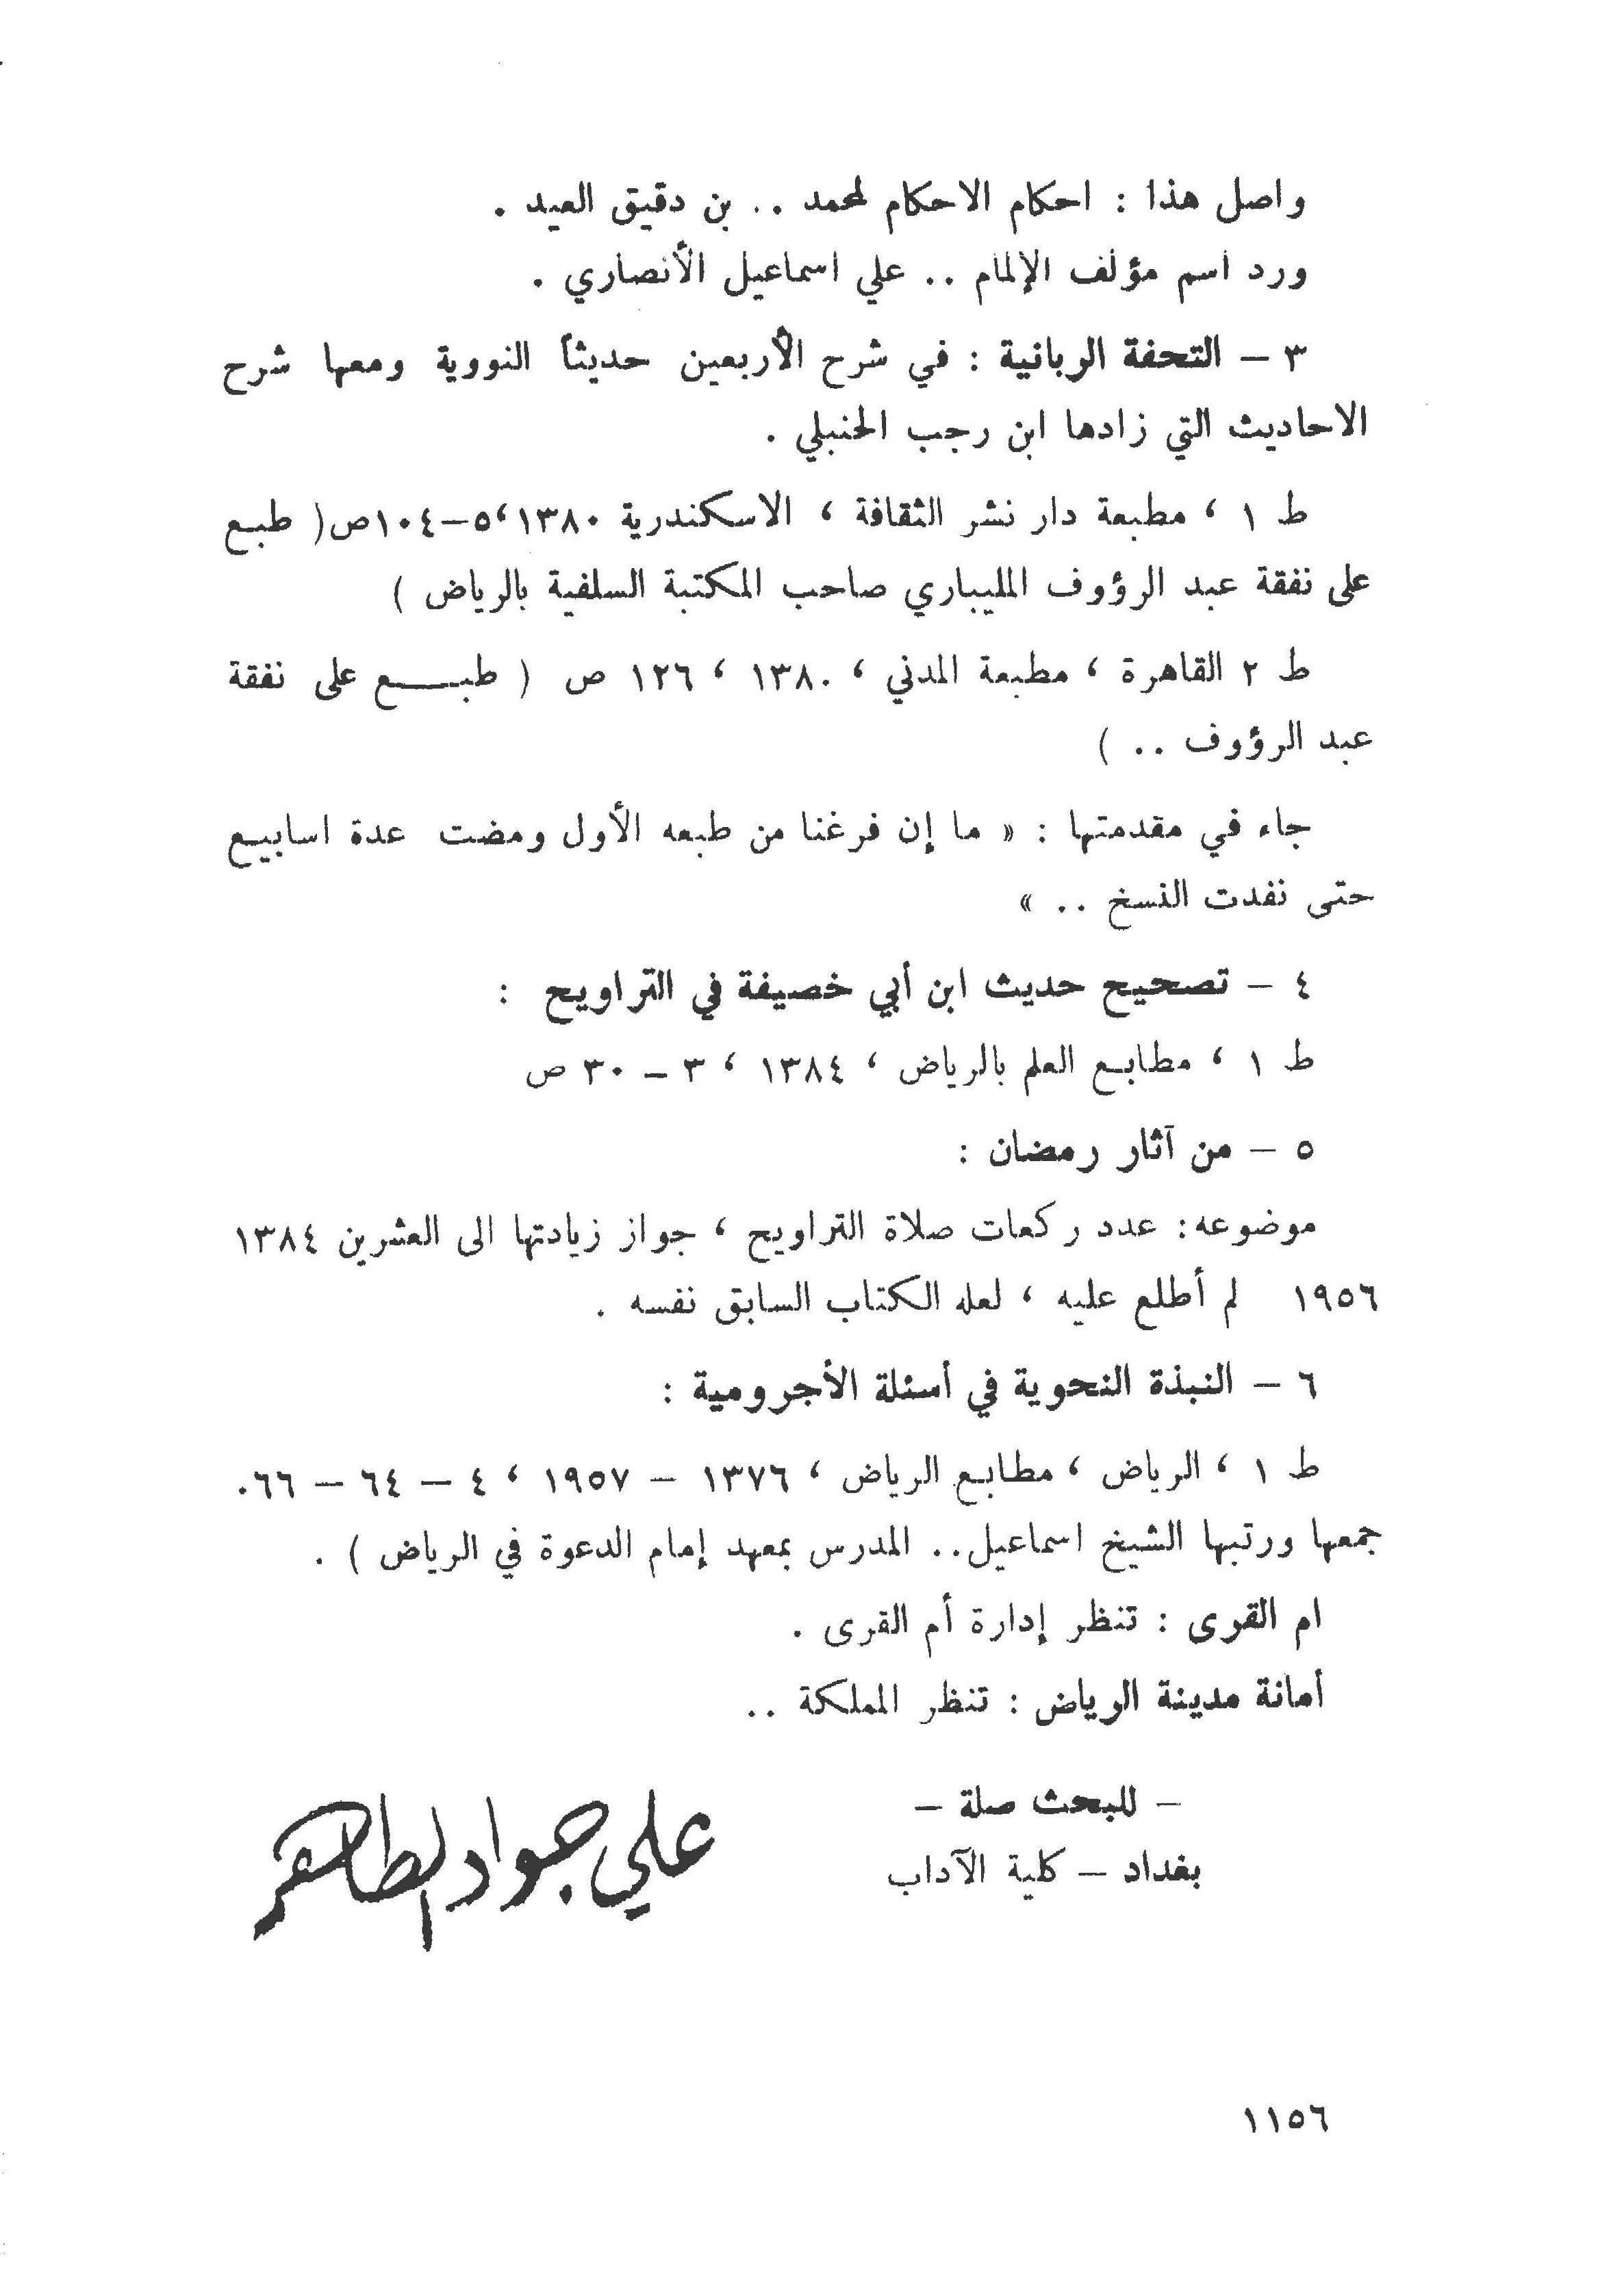 واصل هذا : احكام الاحكام لمحمد .. بن دقيق العيد .
ورد اسم مؤلف الإلمام .. علي اسماعيل الأنصاري .
٣ – التحفة الربانية : في شرح الأربعين حديثاً النووية ومعها شرح
الاحاديث التي زادها ابن رجب الحنبلي .
ط ١ ، مطبعة دار نشر الثقافة ، الاسكندرية ١٣٨٠،٥–١٠٤ص( طبع
على نفقة عبد الرؤوف المليباري صاحب المكتبة السلفية بالرياض )
ط ٢ القاهرة ، مطبعة المدني ، ١٣٨٠ ، ١٢٦ ص ( طبـــع على نفقة
عبد الرؤوف .. )
جاء في مقدمتها : « ما إن فرغنا من طبعه الأول ومضت عدة اسابيع
حتى نفدت النسخ .. »
٤ – تصحيح حديث ابن أبي خصيفة في التراويح :
ط ١ ، مطابع العلم بالرياض ، ١٣٨٤ ، ٣ – ٣٠ ص
٥ – من آثار رمضان :
موضوعه: عدد ركعات صلاة التراويح ، جواز زيادتها الى العشرين ١٣٨٤
١٩٥٦ لم أطلع عليه ، لعله الكتاب السابق نفسه .
٦ – النبذة النحوية في أسئلة الأجرومية :
ط ١ ، الرياض ، مطابع الرياض ، ١٣٧٦ – ١٩٥٧ ، ٤ – ٦٤ – ٦٦.
جمعها ورتبها الشيخ اسماعيل.. المدرس بمعهد إمام الدعوة في الرياض ) .
ام القرى : تنظر إدارة أم القرى .
أمانة مدينة الرياض : تنظر المملكة ..
– للبحث صلة –
بغداد – كلية الآداب
علي جواد الطاهر
١١٥٦